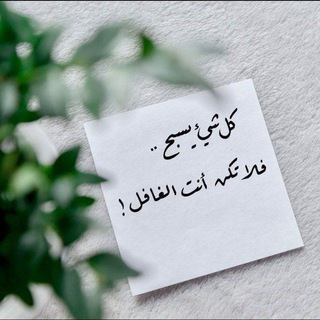 كل شيء يسبح ..
فلا تكن أنت الغافل !